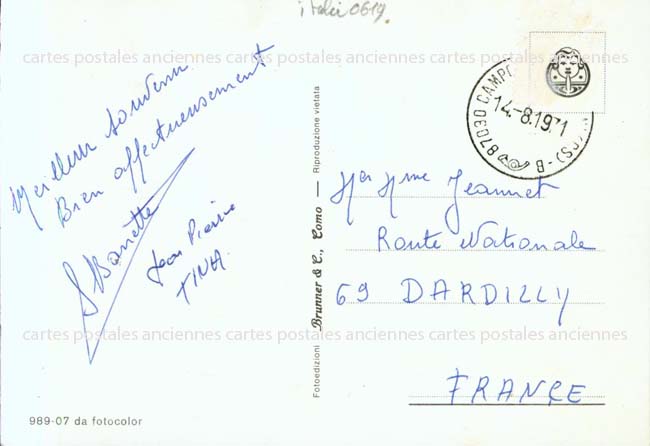 italie 0619
cartes postales anciennes cartes postales anciennes cartes postales anciennes
Meilleur souvenir
Bien affectueusement
Jean Pierre
TINA
87030 CAMPO (CS) - B -
14-8.1971
Mr Mme Jeannet
Route Nationale
69 DARDILLY
FRANCE
cartes postales anciennes cartes postales anciennes cartes postales anciennes
Fotoedizioni Brunner & C., Como — Riproduzione vietata
989-07 da fotocolor